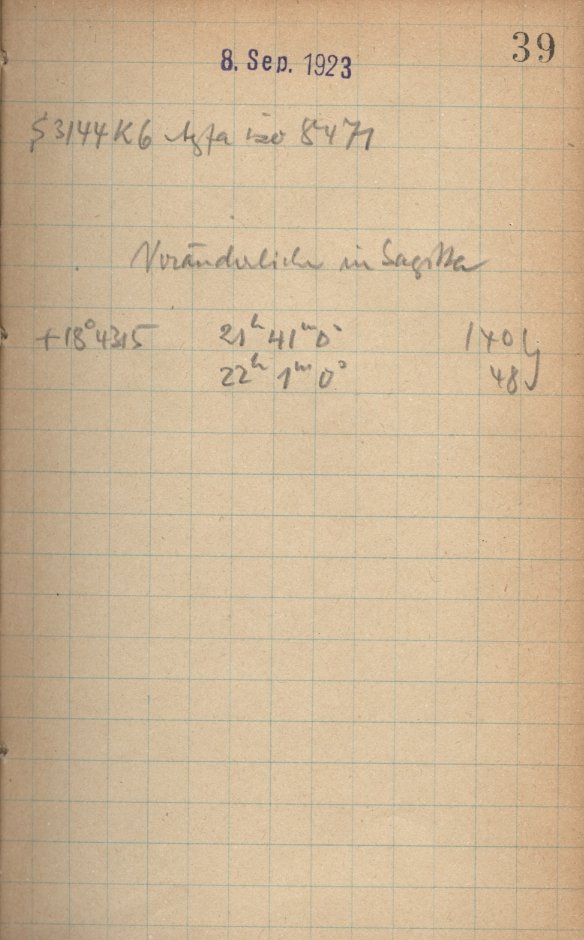 39
8. Sep. 1923
S 3144 K6 Agfa iso 8471
Veränderliche in Sagitta
+18°4315 21ʰ 41ᵐ 0ˢ 140
22ʰ 1ᵐ 0ˢ 48